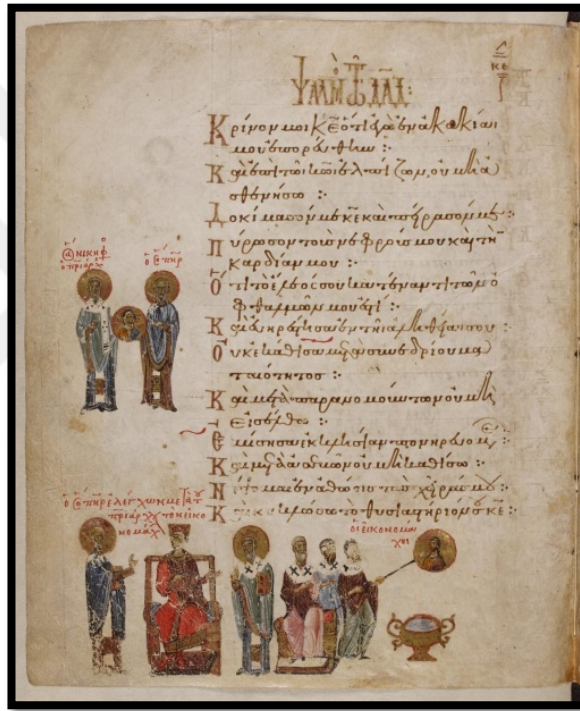 κε
Ψαλμὸς τῷ Δαδ:
Κρῖνόν μοι κε ὅτι ἐγὼ ἐν ἀκακίαι
μου ἐπορεύθην :
Καὶ ἐπὶ τῶι κωι ἐλπίζων, οὐ μὴ ἀ
σθενήσω :
Δοκίμασόν με κε καὶ πείρασόν με :
Πύρωσον τοὺς νεφρούς μου καὶ τὴν
καρδίαν μου :
Ὅτι τὸ ἔλεός σου κατέναντι τῶν ὀ
φθαλμῶν μου ἐστί :
Καὶ εὐηρέστησα ἐν τῆι ἀληθείαι σου :
Οὐκ ἐκάθισα μετὰ συνεδρίου μα
ταιότητος :
Καὶ μετὰ παρανομούντων οὐ μὴ
εἰσέλθω :
Ἐμίσησα ἐκκλησίαν πονηρευομέ :
Καὶ μετὰ ἀσεβῶν οὐ μὴ καθίσω :
Νίψομαι ἐν ἀθώοις τὰς χεῖράς μου :
Καὶ κυκλώσω τὸ θυσιαστήριόν σου κε :
ὁ ἁ νικηφ
ὁ πριάρχ
ὁ ς πηρ
ὁ ς πηρ ἐλέγχων μετὰ τοῦ
πριάρχ τὸν εἰκο
νομάχ
οἱ εἰκονομά
χοι